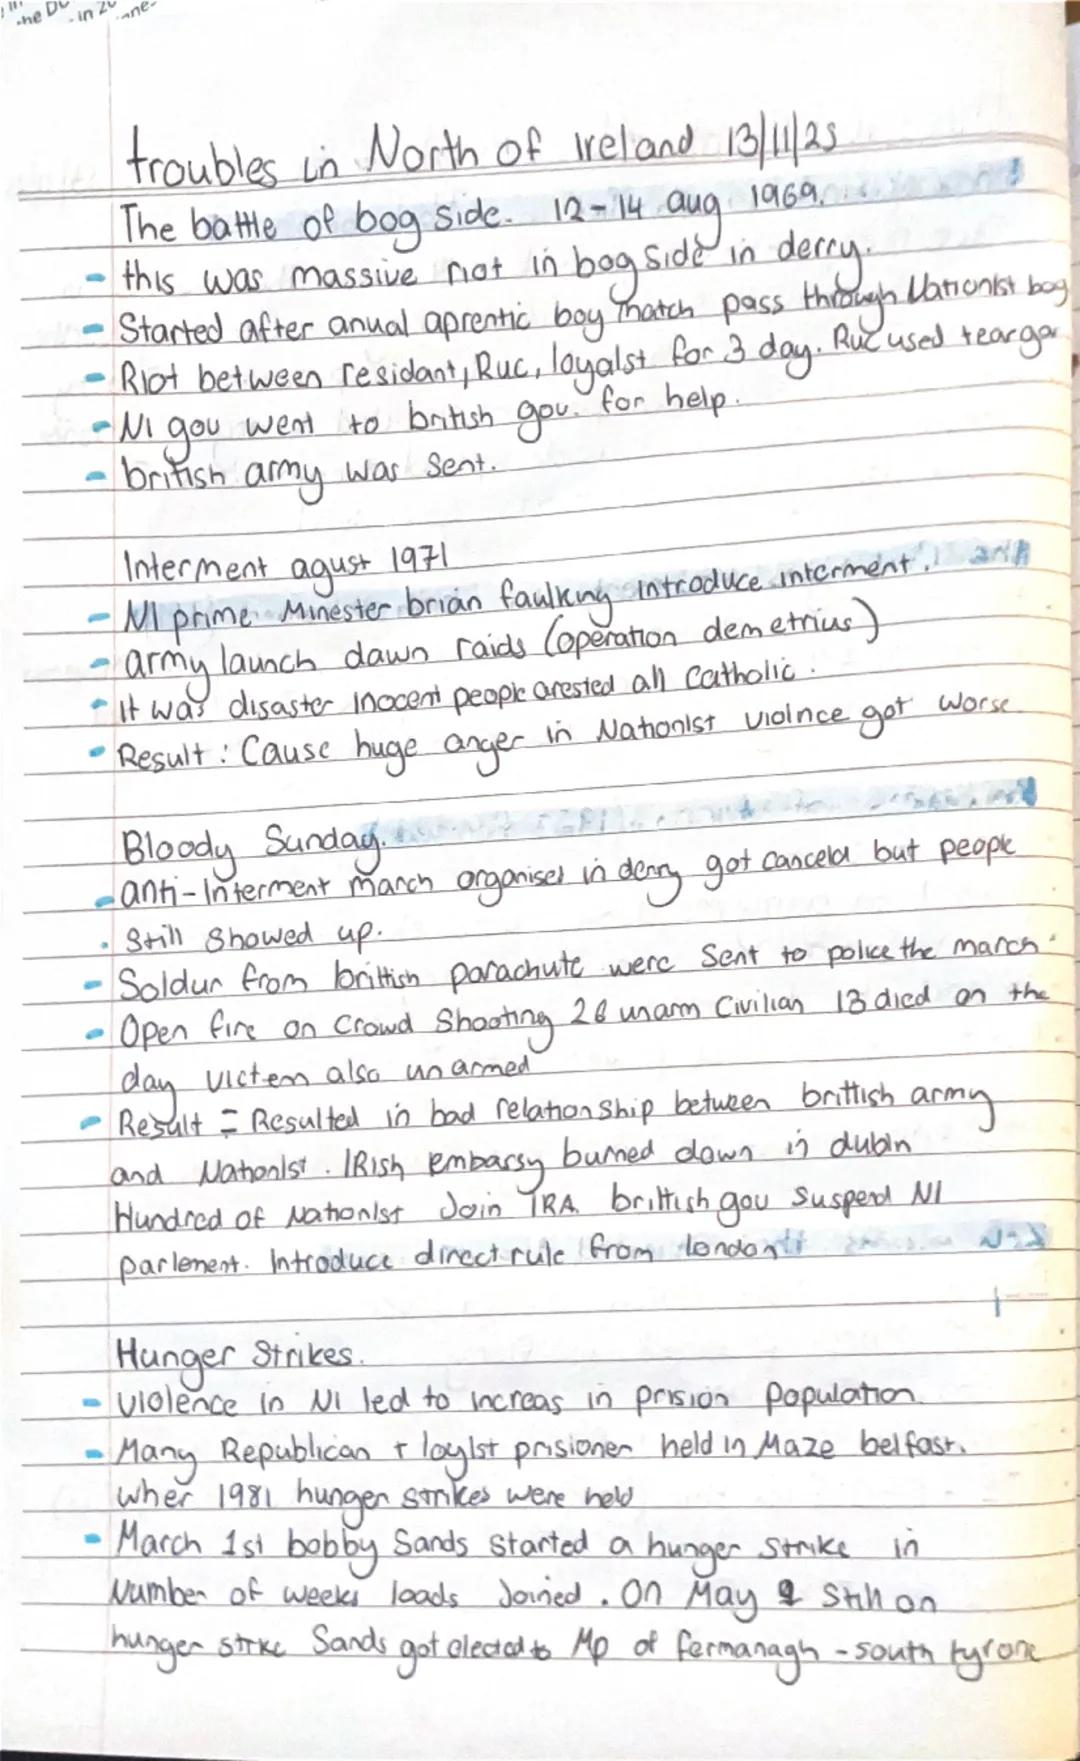 troubles in North of Ireland 13/11/25
The battle of bog side. 12-14 aug 1969.
- this was massive riot in bogside in derry.
- Started after anual aprentic boy match pass through Nationlst bog
- Riot between residant, Ruc, loyalst for 3 day. Ruc used teargas
- NI gov went to british gov. for help.
- british army was sent.
Interment agust 1971
- NI prime Minester brian faulkny introduce interment.
- army launch dawn raids (operation demetrius)
- It was disaster inocent people arested all Catholic.
- Result: Cause huge anger in Nationlst violnce got worse
Bloody Sunday.
- anti-Interment march organised in derry got canceld but people
. Still Showed up.
- Soldur from brittish parachute were Sent to police the march
- Open fire on Crowd Shooting 26 unarm Civilian 13 died on the
day victem also unarmed
- Result = Resulted in bad relationship between brittish army
and Nationlst. IRish embarsy burned down in dubln
Hundred of Nationlst Join IRA. brittish gov Suspend NI
parlement. Introduce direct rule from london
Hunger Strikes.
- violence in NI led to increas in prision population.
- Many Republican + loylst prisioner held in Maze belfast.
wher 1981 hunger strikes were held
- March 1st bobby Sands Started a hunger Strike in
Number of weeks loads Joined. On May Still on
hunger strke Sands got elected to Mp of fermanagh - south tyrone